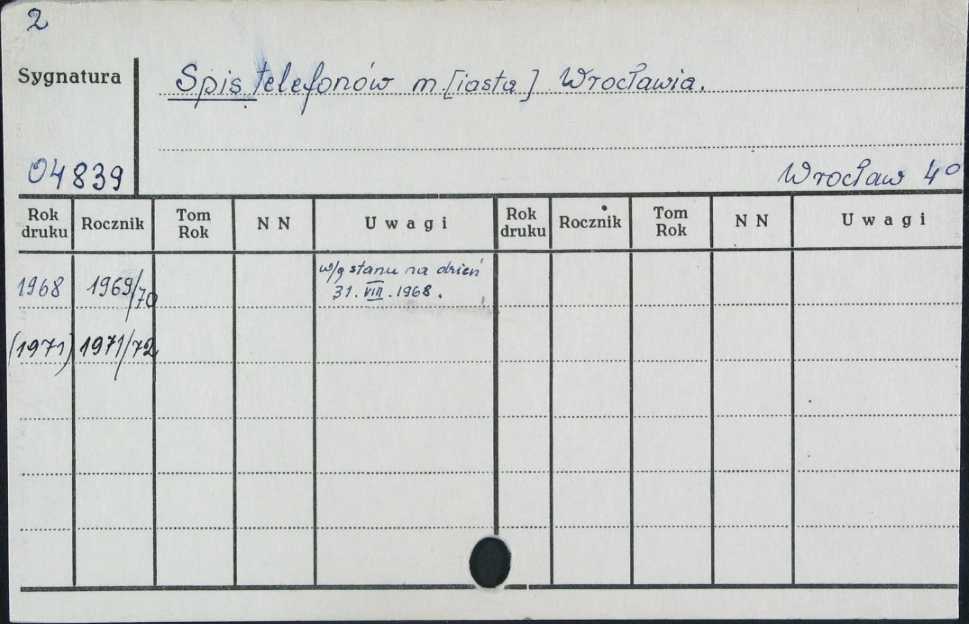 2
Sygnatura
Spis telefonów m.[iasta] Wrocławia.
04839
Wrocław 4°
Rok druku Rocznik Tom Rok N N Uwagi Rok druku Rocznik Tom Rok N N Uwagi
1968 1969/70 w/g stanu na dzień
31.VIII.1968.
(1971) 1971/72